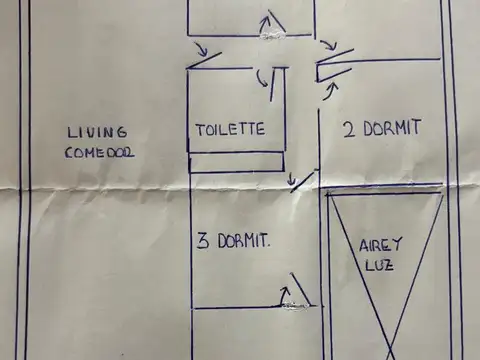 LIVING
COMEDOR
TOILETTE
2 DORMIT
3 DORMIT.
AIRE Y
LUZ